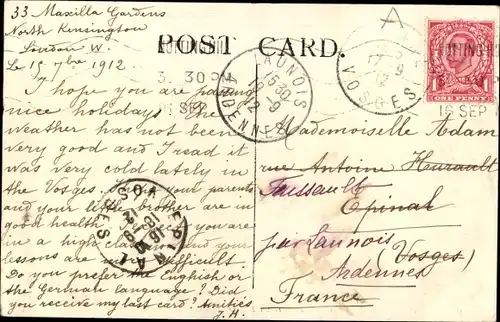 33 Maxilla Gardens
North Kensington
London W.
Le 15 7bre 1912
I hope you are passing
nice holidays. The
weather has not been
very good and I read it
was very cold lately in
the Vosges. I hope your parents
and your little brother are in
good health. you are
in a high class and your
lessons are more difficult
Do you prefer the English or
the German language? Did
you receive my last card? Amitiés
J. H.
POST CARD.
3. 30 PM
16 SEP
LAUNOIS
15 30
19 - 9
12
ARDENNES
A
17 - 9
12
VOSGES
NOTTING HILL
16 SEP
ONE PENNY
EPINAL
VOSGES
Mademoiselle Adam
rue Antoine Hurault
Faissault
Epinal
par Launois (Vosges)
Ardennes
France